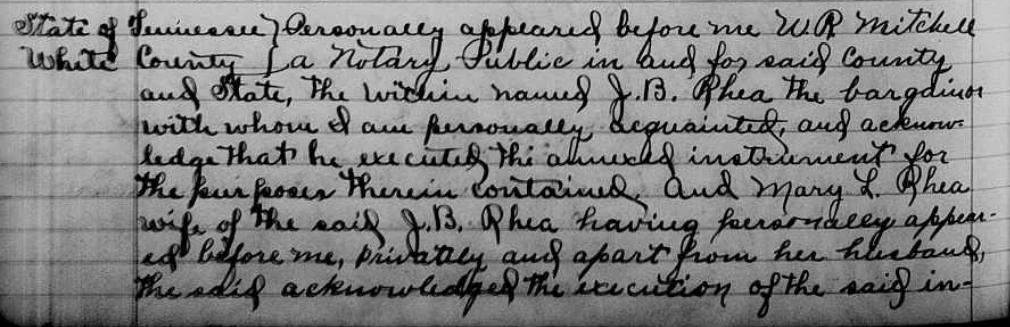 State of Tennessee } Personally appeared before me W.R. Mitchell
White County { a Notary Public in and for said County
and State, the within named J.B. Rhea the bargainor
with whom I am personally acquainted, and acknow-
ledge that he executed the annexed instrument for
the purposes therein contained. And Mary L. Rhea
wife of the said J.B. Rhea having personally appear-
ed before me, privately and apart from her husband,
the said acknowledged the execution of the said in-